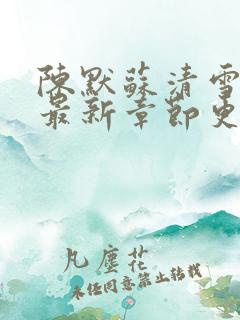 陳默蘇清雪
最新章節史
凡塵花
未經同意禁止轉載